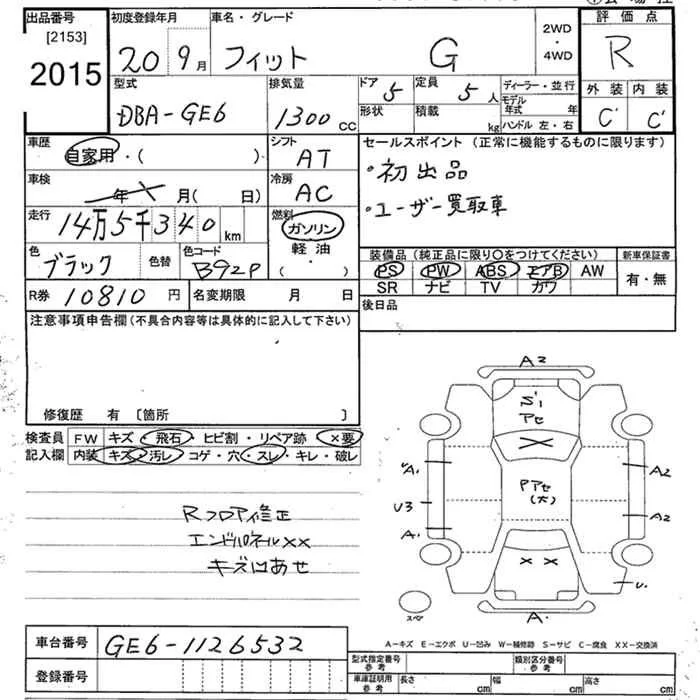 出品番号 初度登録年月 車名・グレード 2WD・4WD 評価点
[2153]
2015 20 9月 フィット G R
型式 排気量 ドア 定員 ディーラー・並行 外装 内装
DBA-GE6 1300 CC 5 5人 モデル年式 年 C' C'
形状 積載 kg ハンドル 左・右
車歴 自家用・( ) シフト AT
セールスポイント (正常に機能するものに限ります)
・初出品
・ユーザー買取車
車検 年 月( 日) 冷房 AC
走行 14万5千340km 燃料 ガソリン 軽油 ・( )
色 ブラック 色替 色コード B92P
装備品 (純正品に限り○をつけてください) 新車保証書
PS PW ABS エアB AW 有・無
SR ナビ TV カワ
R券 10810円 名変期限 月 日
後日品
注意事項申告欄(不具合内容等は具体的に記入して下さい)
修復歴 有 [箇所 ]
検査員 FW キズ・飛石・ヒビ割・リペア跡・×要
記入欄 内装 キズ・汚レ・コゲ・穴・スレ・キレ・破レ
Rフロア修正
エンドパネル××
キズはあせ
A2
S'1
アセ
Pアセ
(大)
A1
U3
A1
A2
A2
××
U.
スペア
A.
A-キズ E-エクボ U-凹み W-補修跡 S-サビ C-腐食 XX-交換済
車台番号 GE6-1126532
登録番号
型式指定番号 参考 類別区分番号 参考
車庫証明用 参考 長さ cm 幅 cm 高さ cm